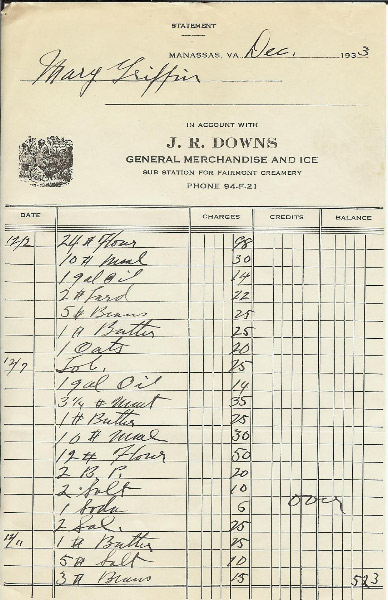 STATEMENT
MANASSAS, VA. Dec. 1933
Mary Griffin
IN ACCOUNT WITH
J. R. DOWNS
GENERAL MERCHANDISE AND ICE
SUB STATION FOR FAIRMONT CREAMERY
PHONE 94-F-21
DATE CHARGES CREDITS BALANCE
12/2 24# Flour 98
10# Meal 30
1 gal Oil 14
2# Lard 22
5# Beans 25
1# Butter 25
1 Oats 20
12/7 25
1 gal Oil 14
3¼# Meat 35
1# Butter 25
10# Meal 30
12# Flour 50
2 B. P. 20
2 Salt 10
over
1 Soda 6
2 25
12/11 1# Butter 25
5# Salt 10
3# Beans 15 523